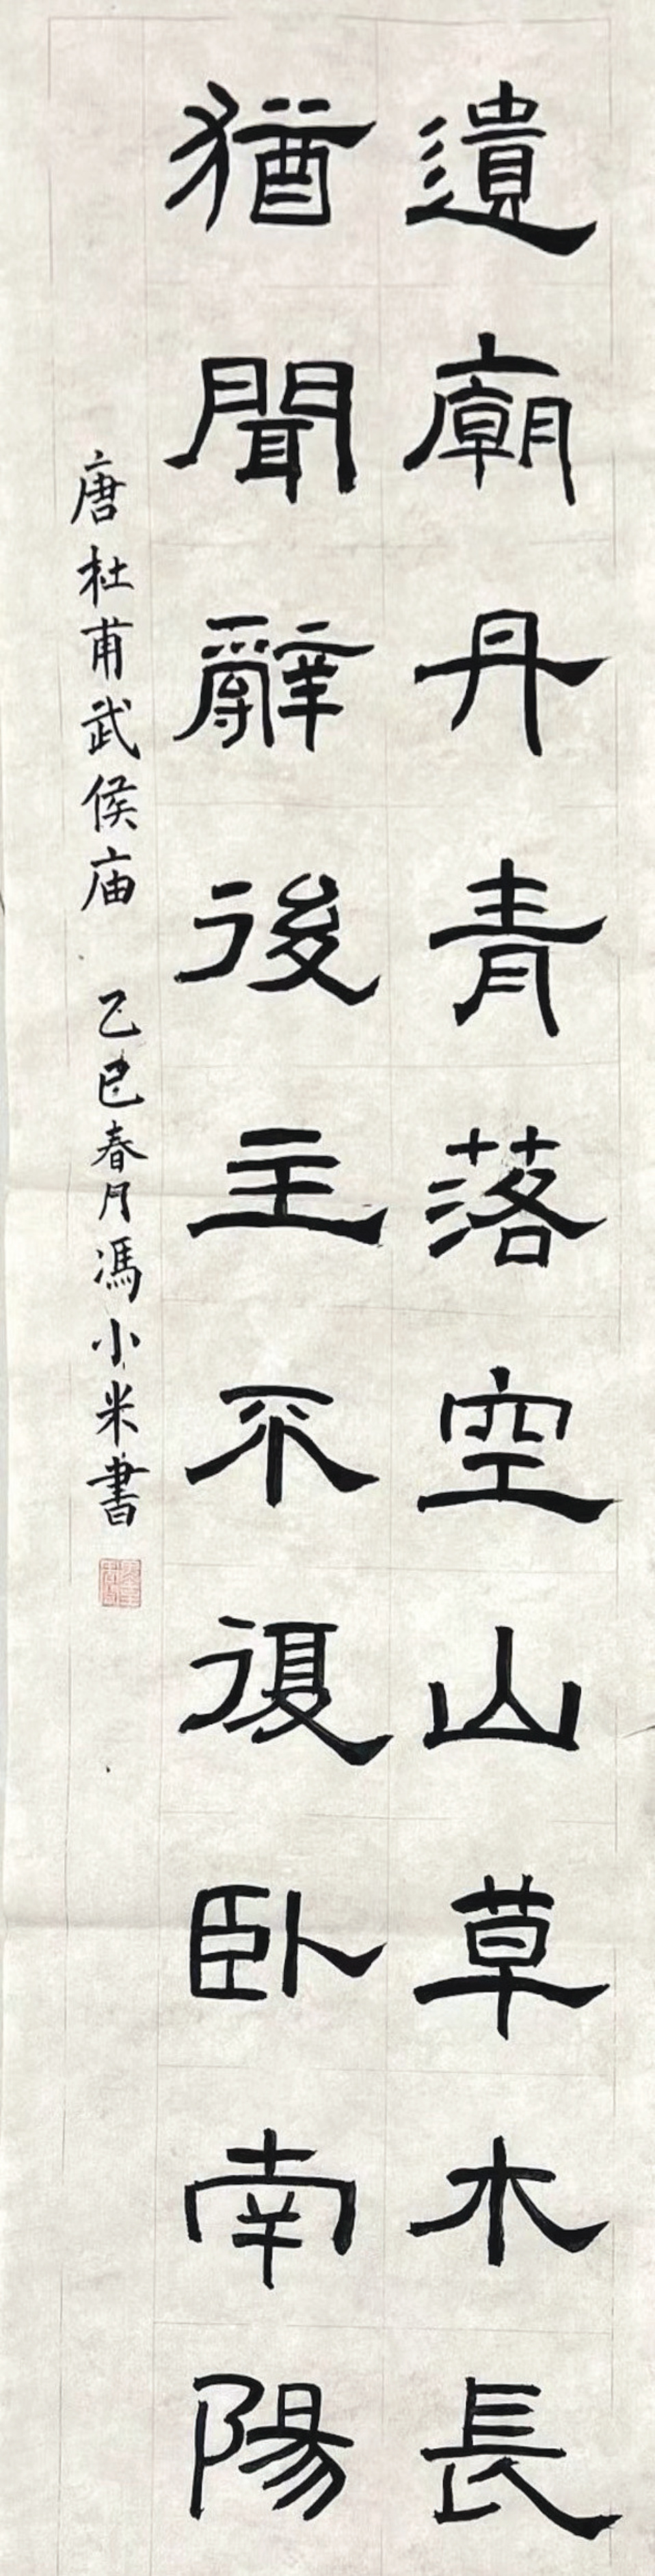 遺廟丹青落空山草木長
猶聞辭後主不復臥南陽
唐杜甫武侯庙 乙巳春月馮小米書